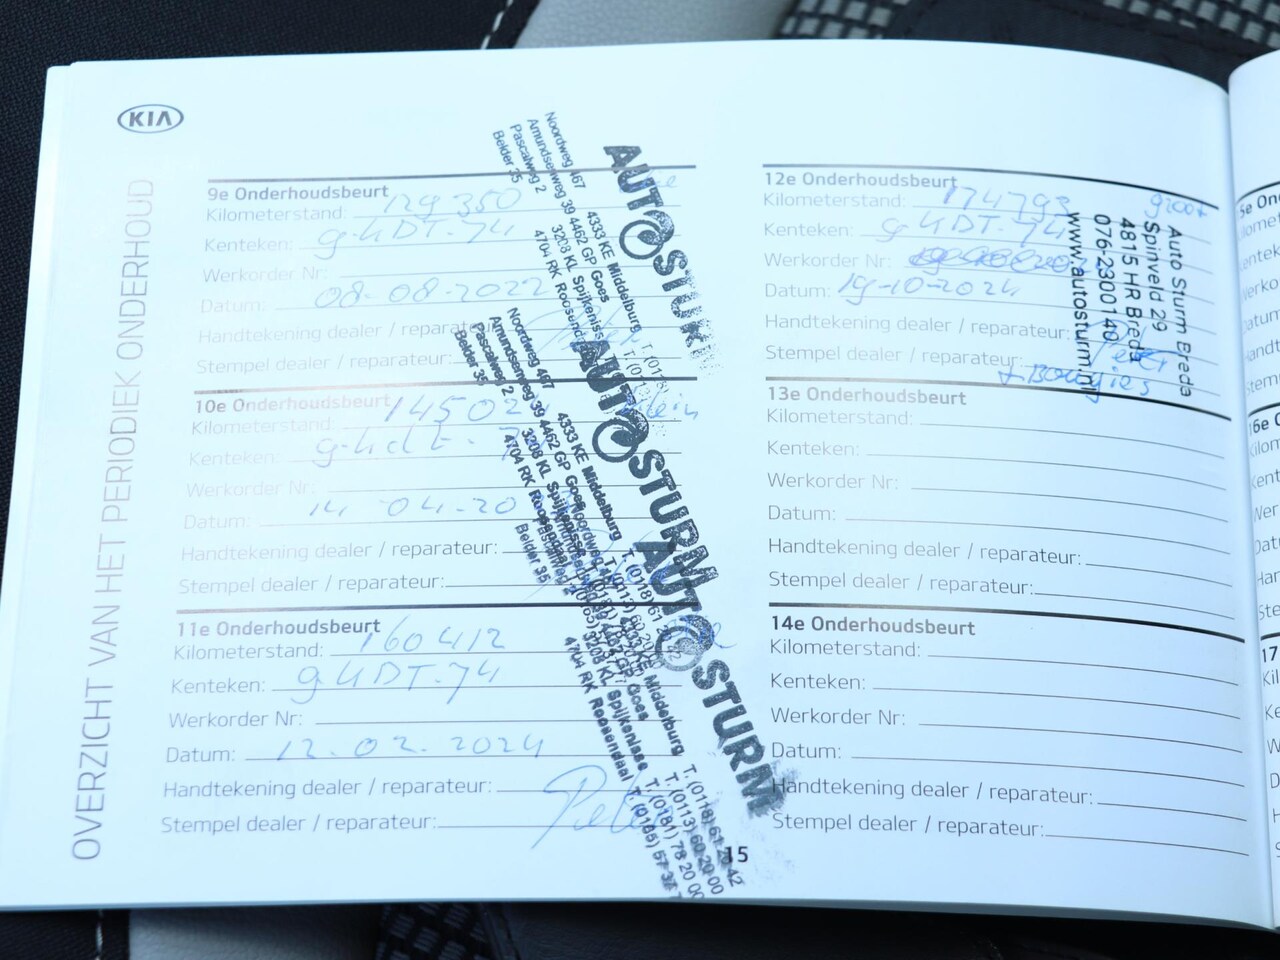 KIA
OVERZICHT VAN HET PERIODIEK ONDERHOUD
9e Onderhoudsbeurt
Kilometerstand: 129350
Kenteken: g-KDT-74
Werkorder Nr:
Datum: 08-08-2022
Handtekening dealer / reparateur:
Stempel dealer / reparateur:
AUTO STURM
Noordweg 467 4333 KE Middelburg
Amundsenweg 39 4462 GP Goes
Pascalweg 2 3208 KL Spijkenisse
Belder 35 4704 RK Roosendaal
10e Onderhoudsbeurt
Kilometerstand: 14502
Kenteken:
Werkorder Nr:
Datum: 14-04-20
Handtekening dealer / reparateur:
Stempel dealer / reparateur:
AUTO STURM
Noordweg 467 4333 KE Middelburg T. (0118) 61
Amundsenweg 39 4462 GP Goes
Pascalweg 2 3208 KL Spijkenisse
Belder 35 4704 RK Roosendaal
11e Onderhoudsbeurt
Kilometerstand: 160412
Kenteken: g-KDT-74
Werkorder Nr:
Datum: 12-02-2024
Handtekening dealer / reparateur:
Stempel dealer / reparateur:
AUTO STURM
Noordweg Middelburg T. (0118) 61 20 42
Goes T. (0113) 60 20 00
3208 KL Spijkenisse T. (0181) 78 20 00
Belder 35 4704 RK Roosendaal T. (0165) 57 37
15
12e Onderhoudsbeurt
Kilometerstand: 174793
Kenteken: g-KDT-74
Werkorder Nr:
Datum: 19-10-2024
Handtekening dealer / reparateur:
Stempel dealer / reparateur:
+ Bougies
Auto Sturm Breda
Spinveld 29
4815 HR Breda
076-2300140
www.autosturm.nl
13e Onderhoudsbeurt
Kilometerstand:
Kenteken:
Werkorder Nr:
Datum:
Handtekening dealer / reparateur:
Stempel dealer / reparateur:
14e Onderhoudsbeurt
Kilometerstand:
Kenteken:
Werkorder Nr:
Datum:
Handtekening dealer / reparateur:
Stempel dealer / reparateur: